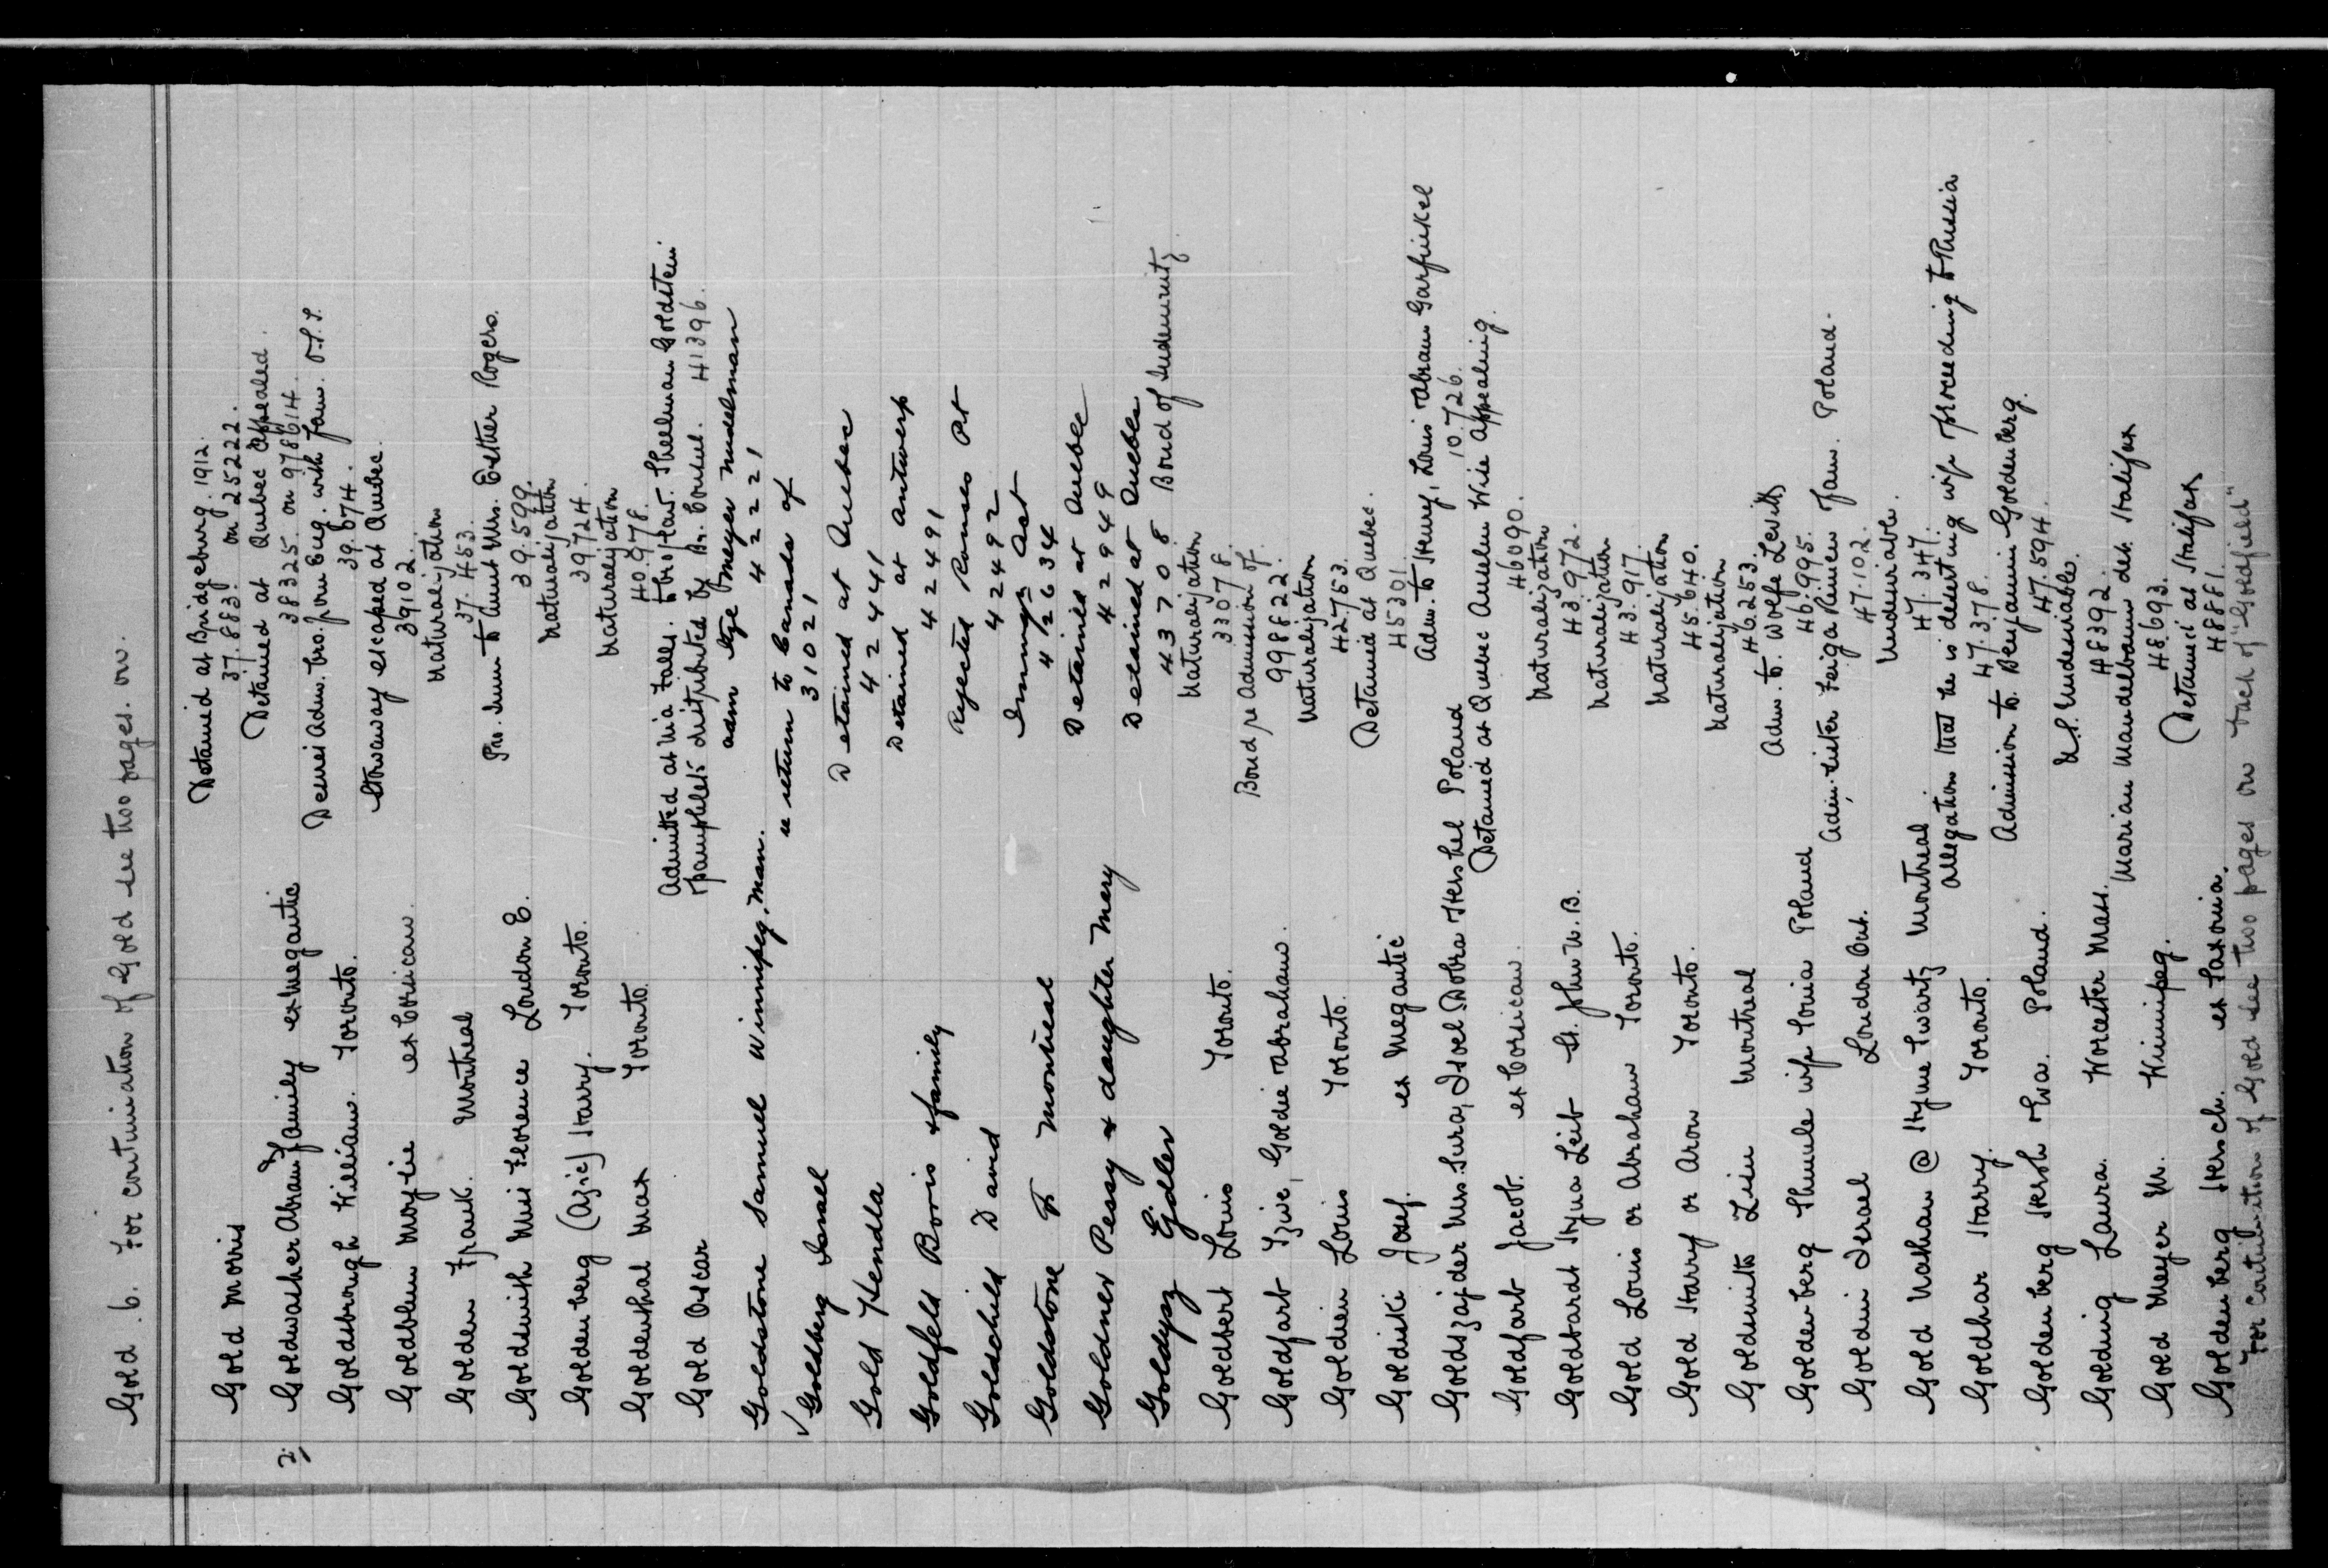 Gold .6. For continuation of Gold see two pages. on.
Detained at Bridgeburg. 1912.
Gold Morris 37.883. on 25222.
Detained at Quebec Appealed.
2; Goldwasher Abram & family ex Megantic 38325. on 978614.
Denies Adm. bro. from Eng. with fam.
Goldsbrough William. Toronto. 39.674.
Stowaway escaped at Quebec
Goldblum Moy ex Corsican. 39102.
Naturalization
Golden Frank. Montreal 37.453.
to Aunt Mrs. Esther Rogers.
Goldsmith Miss Florence London E. 39.599.
Naturalization
Goldenberg (Azic) Harry. Toronto. 39724.
Naturalization
Goldenthal Max Toronto. 40.978.
Admitted at Nia Falls. to bro/law. Sheelman Goldstein
Gold Oscar pamphlets distributed by Br. Consul. 41396.
adm Meyer Nudelman
Goldstone Samuel Winnipeg, Man. 42221
re return to Canada of
✓ Goldberg Israel 31021
Detained at Quebec
Gold Hendla 42441
Detained at Antwerp
Goldfeld Boris & family 42491
Rejected Rouses Pt
Goldschild David 42492
Immgn Act
Goldstone Montreal 42634
Detained at Quebec
Goldner Pessy & daughter Mary 42949
Detained at Quebec
Goldysz Ejdler 43708 Bond of Indemnity
Naturalization
Goldbert Louis Toronto. 33078.
Bond re Admission of
Goldfarb Tziwe, Goldie Abraham. 998822.
Naturalization
Goldin Louis Toronto. 42753.
Detained at Quebec.
Goldiski Josef. ex Megantic 45301
Adm. to Henry, Louis Abram Garfinkel
Goldszajder Mrs. Sura, Isoel Dobra Hershel Poland 10.726.
Detained at Quebec Anselm Wise Appealing.
Goldfarb Jacob. ex Corsican. 46090.
Naturalization
Goldbardt Hyua Leib St. John N.B. 43.972.
Naturalization
Gold Louis or Abraham Toronto. 43.917.
Naturalization
Gold Harry or Aron Toronto. 45.640.
Naturalization
Goldsmith Lein Montreal 46253.
Adm. to Wolfe Levitt
Goldenberg Shmule wife Sonia Poland 46.995.
Adm. sister Feiga Rimer fam. Poland.
Goldin Israel London Ont. 47.102.
Undesirable.
Gold Nathan @ Hyme Swartz Montreal 47.347.
Allegation that he is deserting wife proceeding to Russia
Goldhar Harry. Toronto. 47.378.
Admission to Benjamin Goldenberg.
Goldenberg Hersh Ewa. Poland. 47.594.
U.S. Undesirables.
Golding Laura. Worcester Mass. 48392.
Marian Mandelbaum det. Halifax
Gold Meyer M. Winnipeg. 48.693.
Detained at Halifax
Goldenberg Hersch. ex Saxonia. 48881.
For continuation of Gold see two pages on back of "Goldfield"